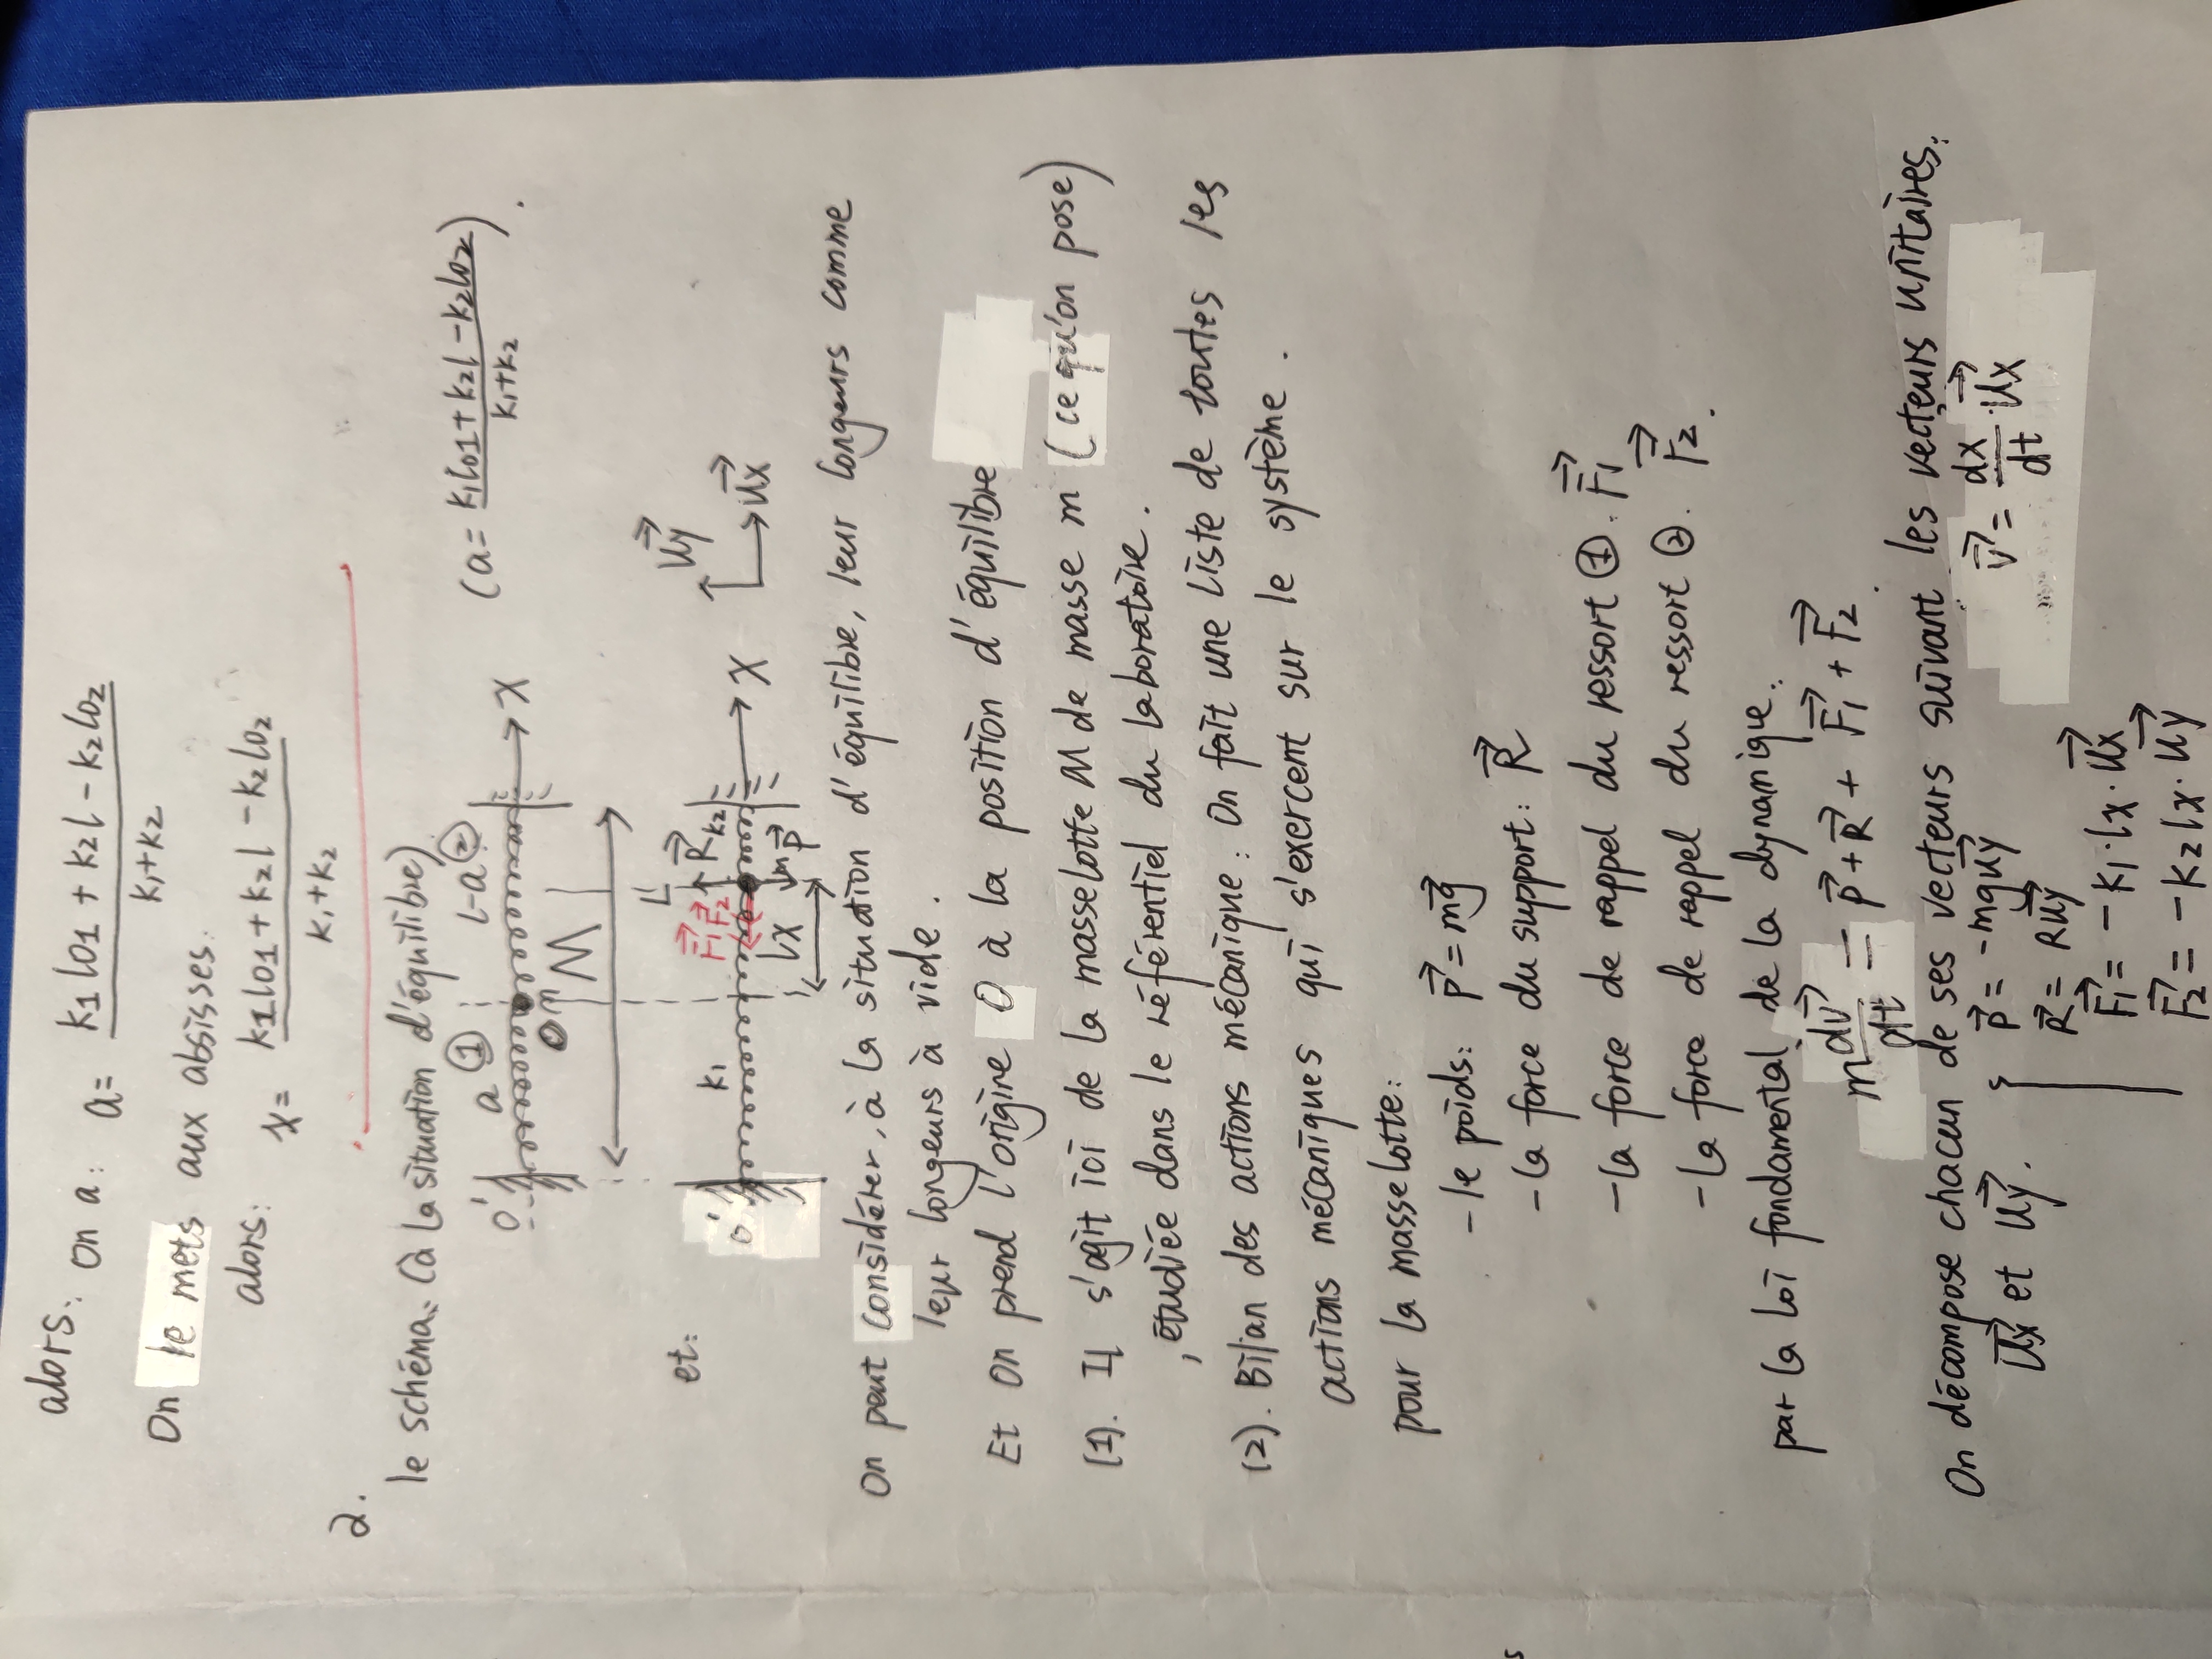 alors: On a: a = (k1 lo1 + k2 l - k2 lo2) / (k1+k2)
On le mets aux absisses.
alors: x = (k1 lo1 + k2 l - k2 lo2) / (k1+k2)
2.
le schéma: (à la situation d'équilibre)
a ① l-a ②
(a = (k1 lo1 + k2 l - k2 lo2) / (k1+k2)).
O' X
O m
M
L
et:
k1 F1→ F2→ R→ k2 Uy→
O' X Ux→
lx m P→
On peut considérer, à la situation d'équilibre, leur longeurs comme
leur longeurs à vide.
Et on prend l'origine O à la position d'équilibre
(1). Il s'agit ici de la masselotte M de masse m (ce qu'on pose)
, étudiée dans le référentiel du laboratoire.
(2). Bilan des actions mécanique: On fait une liste de toutes les
actions mécaniques qui s'exercent sur le système.
pour la masselotte:
- le poids: P→ = mg→
- la force du support: R→
- la force de rappel du ressort ①. F1→
- la force de rappel du ressort ②. F2→.
par la loi fondamental de la dynamique:
m dv→/dt = P→ + R→ + F1→ + F2→
On décompose chacun de ses vecteurs suivant les vecteurs unitaires:
Ux→ et Uy→. P→ = -mg uy→ v→ = dx/dt · Ux→
R→ = R uy→
F1→ = -k1·lx·Ux→
F2→ = -k2 lx·Uy→